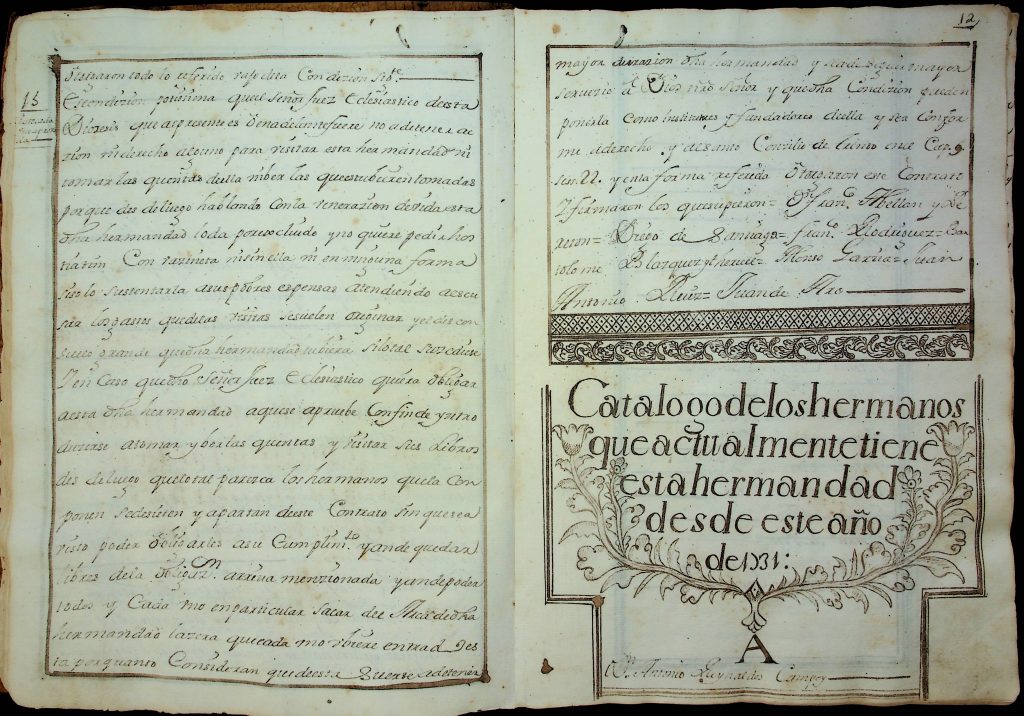 otorgaron todo lo referido vaxo dita Condizion
15
Es condizion que el señor Juez Eclesiastico de esta
Diocesis que al presente es o en adelante fuere no a de tener ac
zion ni derecho alguno para visitar esta hermandad ni
tomar las quentas della ni ber las que estubieren tomadas
porque des de luego hablando con la venerazion devida esta
dha hermandad loda por escluido y no quiere pedir
Con ni sin ella ni en ninguna forma
si solo sustentarla a sus pobres espensas atendiendo a escu
sar los gastos que ditas visitas se suelen ocasinar y el des con
suelo grande que dha hermandad tubiera si lo tal suzediese
Y en Caso que dho señor Juez Eclesiastico quiera obligar
a esta dha hermandad a que se apruebe Con fin de yntro
duzirse a tomar y ber las quentas y visitar sus Libros
des de luego que lo tal parezca los hermanos que la Con
ponen se desisten y apartan de este Contrato sin que sea
visto poder obligarles a su Cumplimto y an de quedar
libres de la obligazn arriva menzionada y an de poder
todos y Cada uno en particular sacar del Arca de dha
hermandad la zera que cada uno ubiere entrad
ta por quanto Consideran que de esta suerte a de tener
12
mayor durazion dha hermandad y sea de mayor
servizio de Dios nro Señor y que dha Condizion pueden
ponerla como institutores y fundadores della y sea Confor
me a derecho y al santo Conzilio de trento en el Cap. 9.
sess. 22. y en la forma referida otorgaron este Contrato
Y firmaron los que supieron= Dn Fran.co Abellan y Be
acon= Diego de Santiago= fran.co Rodriguez= Bar
tolome Blazquez y hervie= Alonso Garzia= Juan
Antonio Ruiz= Juan de Aro
Catalogo de los hermanos
que actualmente tiene
esta hermandad
desde este año
de 1731:
A
Dn. Antonio Reynaldos Campoy